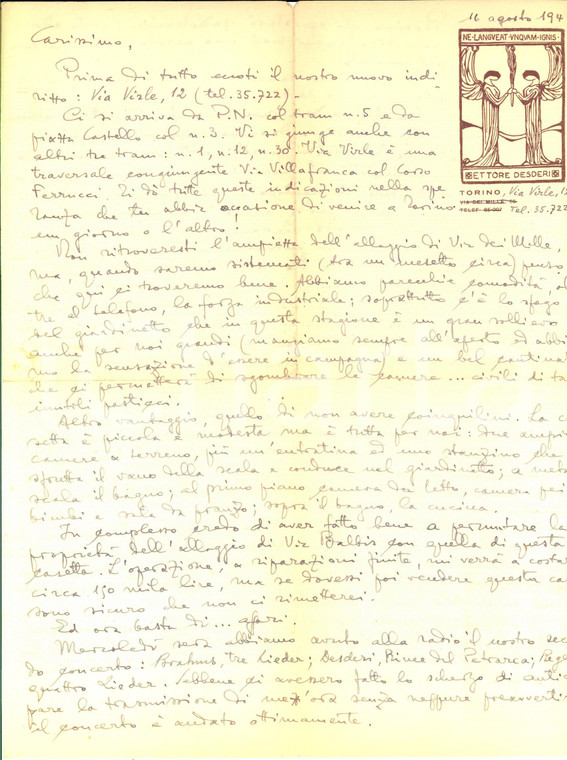 11 agosto 194
Carissimo,
NE·LANGVEAT·VNQVAM·IGNIS·
ETTORE DESDERI
TORINO, Via Virle, 12
VIA DEI MILLE
TELEF. Tel. 35.722
Prima di tutto eccoti il nostro nuovo indi-
rizzo: Via Virle, 12 (tel. 35.722)-
Ci si arriva da P.N. col tram n. 5 e da
piazza Castello col n. 3. Vi si giunge anche con
altri tre tram: n. 1, n. 12, n. 30. Via Virle è una
traversale congiungente Via Villafranca col Corso
Ferrucci. Ti dò tutte queste indicazioni nella spe
ranza che tu abbia occasione di venire a Torino
un giorno o l'altro!
Non ritroveresti l'ampiezza dell'alloggio di Via dei Mille,
ma, quando saremo sistemati (tra un mesetto circa) penso
che qui ci troveremo bene. Abbiamo parecchie comodità, ol
tre al telefono, la forza industriale; soprattutto c'è lo sfogo
del giardinetto che in questa stagione è un gran sollievo
anche per noi grandi (mangiamo sempre all'aperto ed abbia
mo la sensazione d'essere in campagna) e un bel cantina
che ci permetterà di sgomberare le camere... civili di ta
inutili pasticci.
Altro vantaggio, quello di non avere coinquilini. La ca
setta è piccola e modesta ma è tutta per noi: due ampie
camere a terreno, più un'entratina ed uno stanzino che
sfrutta il vano della scala e conduce nel giardinetto; a metà
scala il bagno; al primo piano camera da letto, camera pei
bimbi e sala da pranzo; sopra il bagno, la cucina.
In complesso credo di aver fatto bene a permutare la
proprietà dell'alloggio di Via Balbis con quella di questa
casetta. L'operazione, a riparazioni finite, mi verrà a costar
circa 150 mila lire, ma se dovessi poi vendere questa ca
sono sicuro che non ci rimetterei.
Ed ora basta di... affari.
Mercoledì sera abbiamo avuto alla radio il nostro secon
do concerto: Brahms, tre Lieder; Desderi, Rime del Petrarca;
quattro Lieder. Sebbene ci avessero fatto lo scherzo di antici
pare la trasmissione di mezz'ora senza neppure preavverti
il concerto è andato ottimamente.